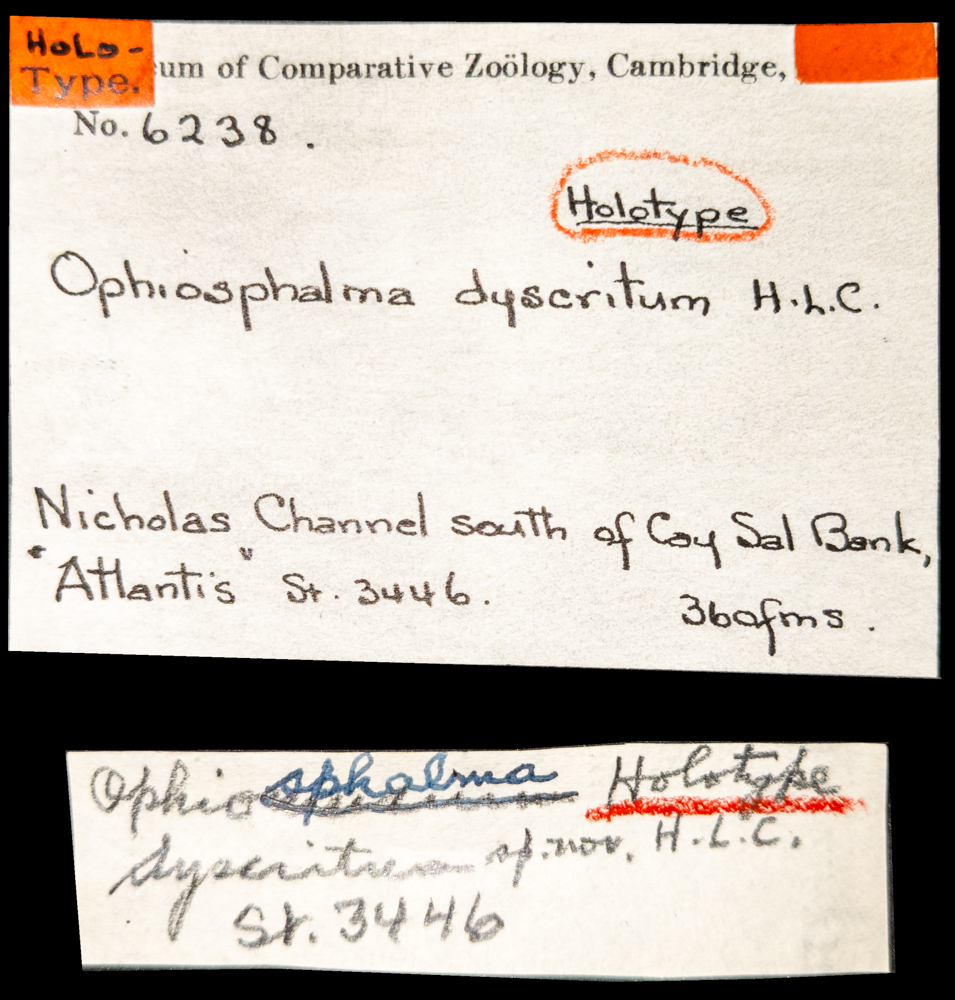 Holo-
Type.
um of Comparative Zoölogy, Cambridge,
No. 6238.
Holotype
Ophiosphalma dyscritum H.L.C.
Nicholas Channel south of Cay Sal Bank,
"Atlantis" St. 3446.
360fms.
Ophiosphalma Holotype
dyscritum sp. nov. H.L.C.
St. 3446